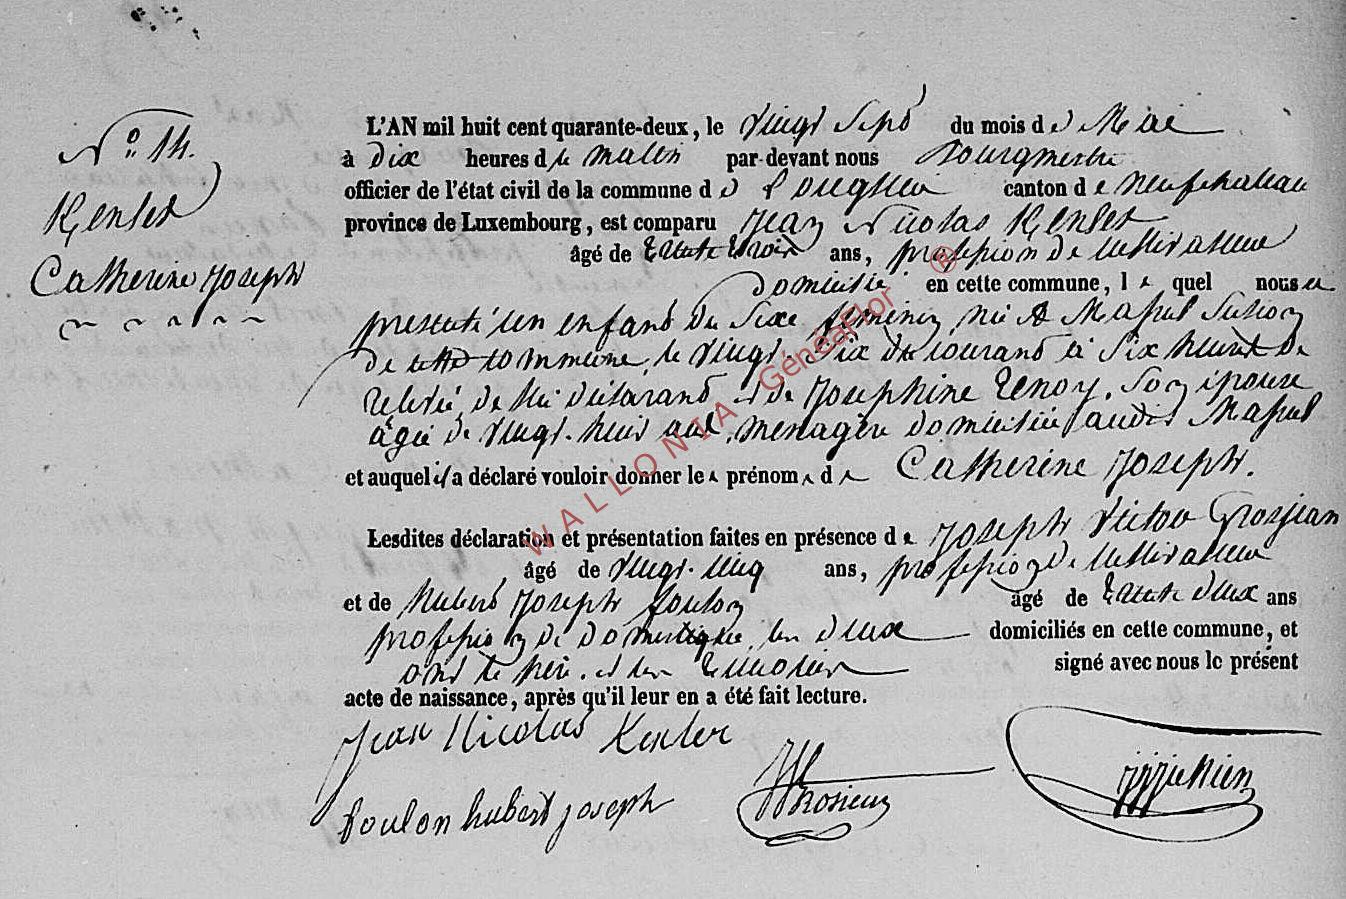 N° 14.
Kenler
Catherine Joseph
L'AN mil huit cent quarante-deux, le vingt sept du mois de Mai
à dix heures du matin par-devant nous Bourgmestre
officier de l'état civil de la commune de canton de neufchateau
province de Luxembourg, est comparu Jean Nicolas Kenler
âgé de trente trois ans, profession de cultivateur
domicilié en cette commune, lequel nous a
presenté un enfant du sexe feminin, né à Massul section
de cette commune, le vingt-six du courant à six heures de
relevé, de lui déclarant et de Josephine Lenoy, son épouse
agée de vingt-huit ans, menagère domiciliée audit Massul
et auquel il a déclaré vouloir donner les prénoms de Catherine Joseph.
Lesdites déclaration et présentation faites en présence de Joseph Victor Grosjean
âgé de vingt-cinq ans, profession de cultivateur
et de Hubert Joseph Foulon âgé de trente deux ans
profession de domestique, les deux domiciliés en cette commune, et
ont le père et les temoins signé avec nous le présent
acte de naissance, après qu'il leur en a été fait lecture.
Jean Nicolas Kenler
foulon hubert joseph
WALLONIA GénéaFlor ®